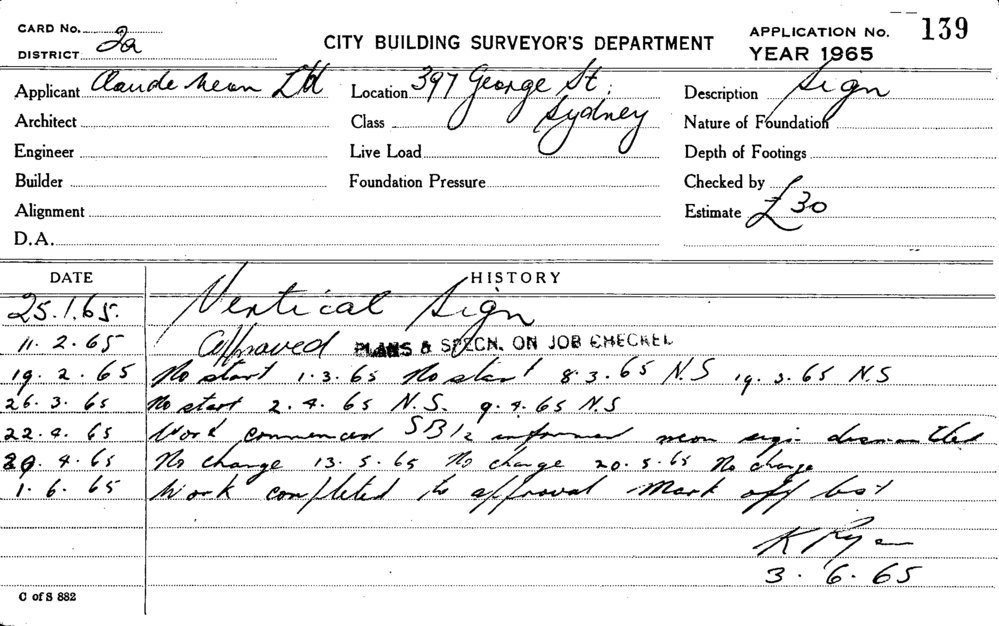 CARD No.
DISTRICT 2a
CITY BUILDING SURVEYOR'S DEPARTMENT
APPLICATION No. 139
YEAR 1965
Applicant Claude Neon Ltd
Location 397 George St. Sydney
Description Sign
Architect
Class
Nature of Foundation
Engineer
Live Load
Depth of Footings
Builder
Foundation Pressure
Checked by
Alignment
Estimate £30
D.A.
DATE HISTORY
25.1.65. Vertical Sign
11.2.65 Approved PLANS & SPECN. ON JOB CHECKED
19.2.65 No start 1.3.65 No start 8.3.65 N.S 19.3.65 N.S
26.3.65 No start 2.4.65 N.S. 9.4.65 N.S
22.4.65 Work commenced informed neon sign dismantled
29.4.65 No change 13.5.65 No change 20.5.65 No change
1.6.65 Work completed to approval Mark off list
K
3.6.65
C of S 882